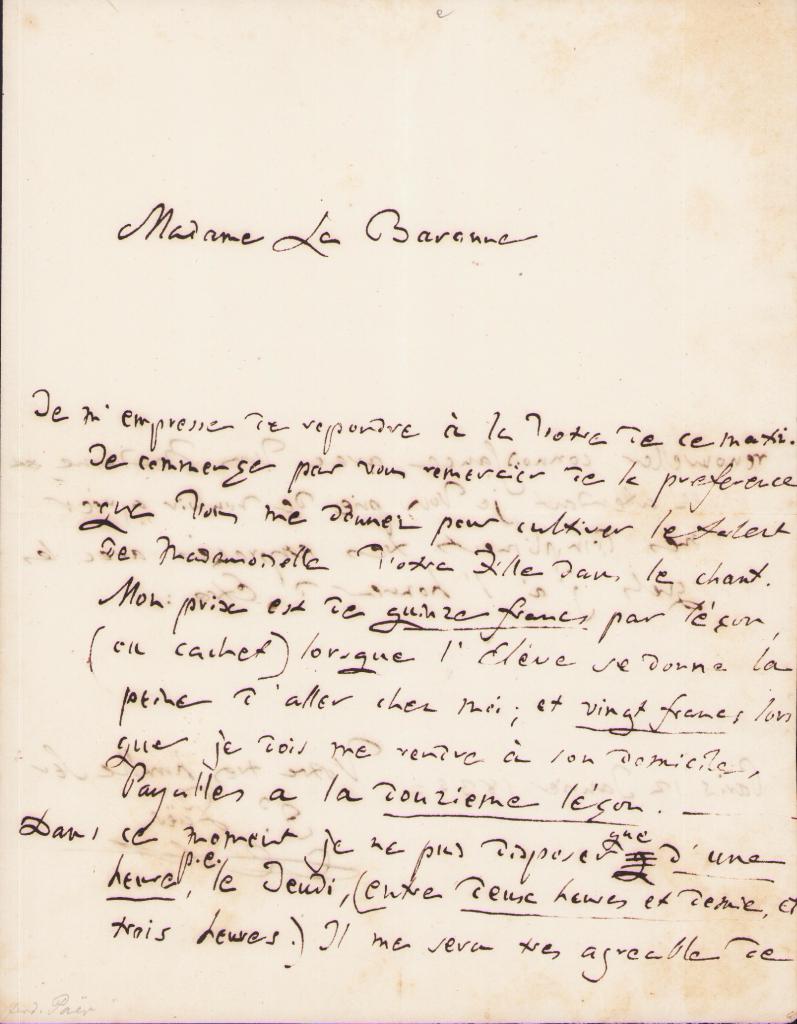 Madame La Baronne
Je m'empresse de repondre à la Votre de ce matin.
Je commençe par vous remercier de la preference
que Vous me donnéz pour cultiver le talent
de Mademoiselle Votre Fille dans le chant.
Mon prix est de quinze francs par léçon,
(ou cachet) lorsque l'Elève se donne la
peine d'aller chez moi; et vingt francs lors
que je dois me rendre à son domicile,
Payables a la douzieme léçon. —
Dans ce moment je ne puis disposer que d'une
heure, p.e. le Jeudi, (entre deux heures et demie, et
trois heures.) Il me sera tres agreable de
Ferd. Paër